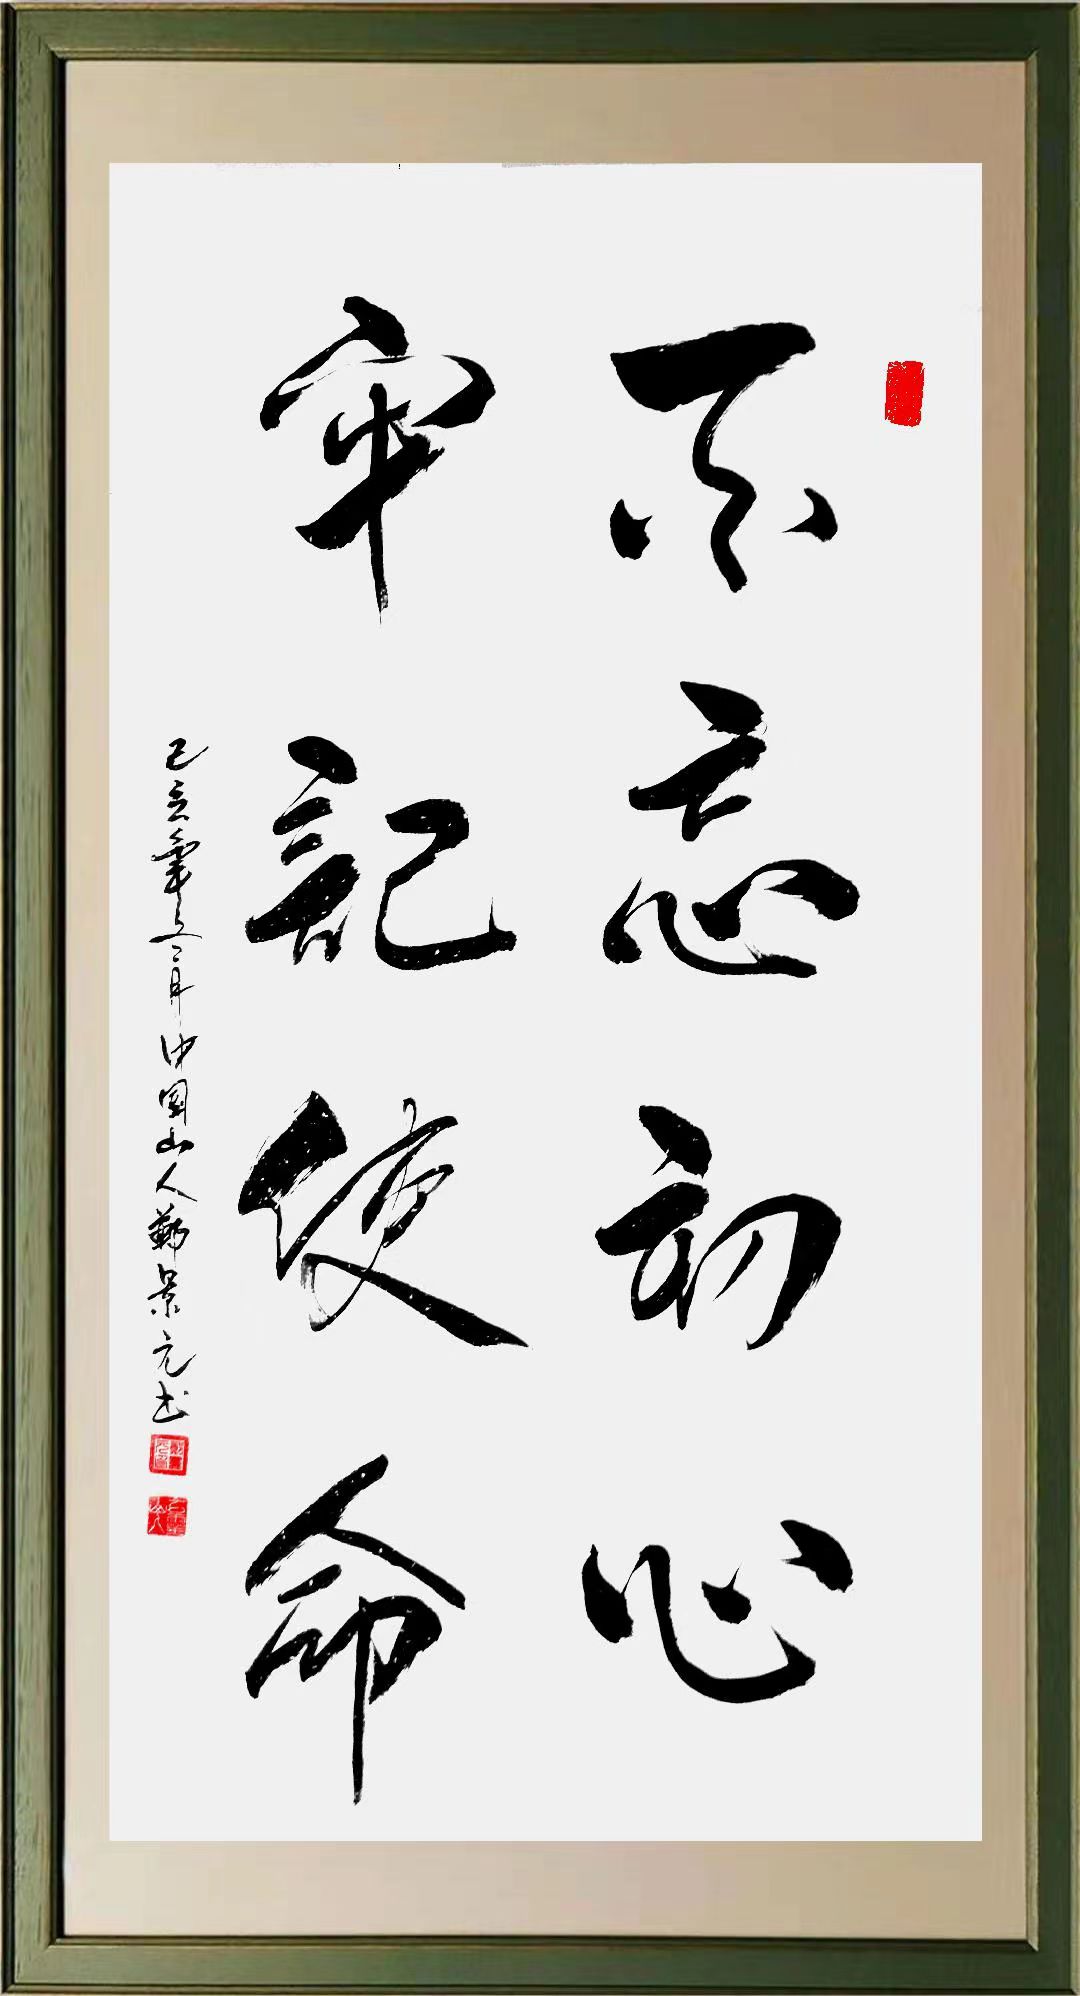 不忘初心
牢记使命
己亥年 月中国山人 景元书